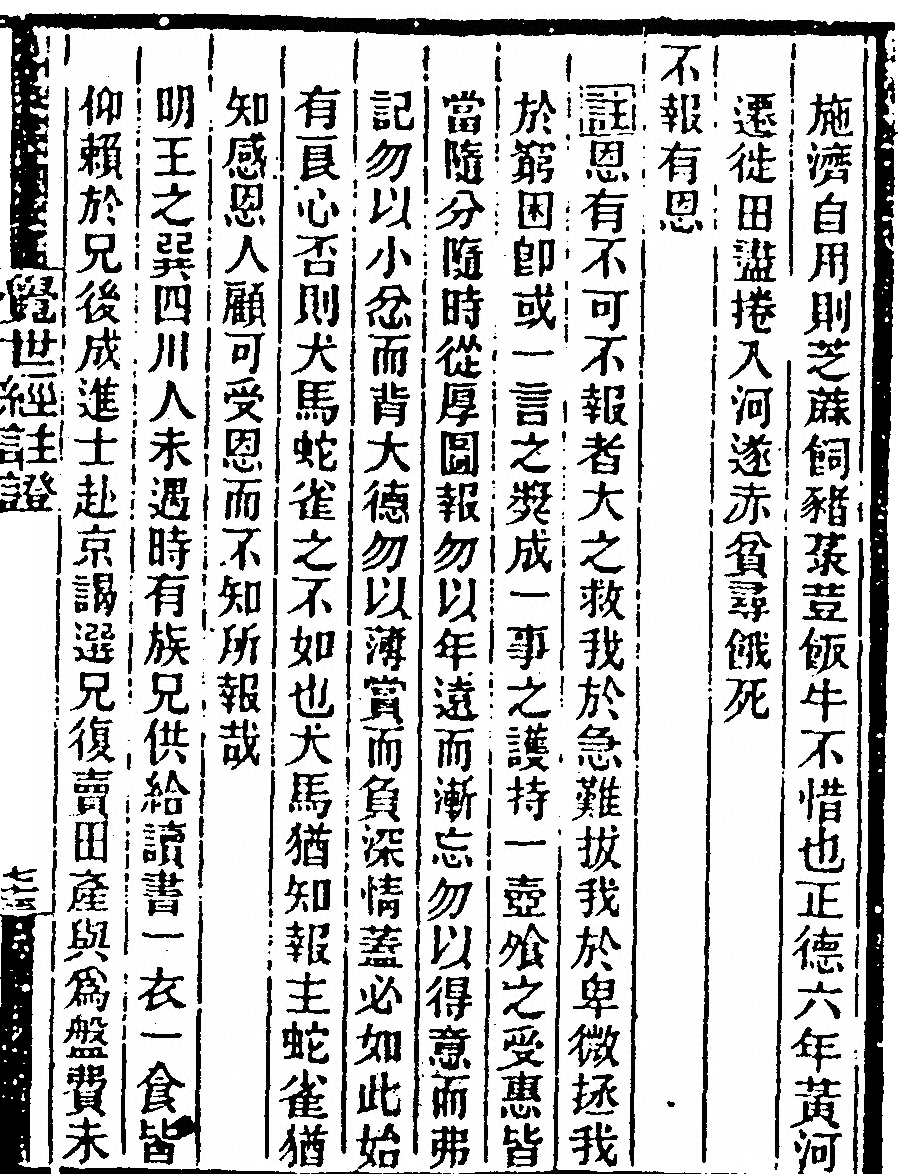 施濟自用則芝蔴飼豬菉荳飯牛不惜也正德六年黃河
遷徙田盪捲入河遂赤貧尋餓死
不報有恩
註恩有不可不報者大之救我於急難拔我於卑微拯我
於窮困卽或一言之奬成一事之護持一壺飧之受惠皆
當隨分隨時從厚圖報勿以年遠而漸忘勿以得意而弗
記勿以小忿而背大德勿以薄嘗而負深情蓋必如此始
有良心否則犬馬蛇雀之不如也犬馬猶知報主蛇雀猶
知感恩人顧可受恩而不知所報哉
明王之巽四川人未遇時有族兄供給讀書一衣一食皆
仰賴於兄後成進士赴京謁選兄復賣田產與爲盤費未
覺世經註證